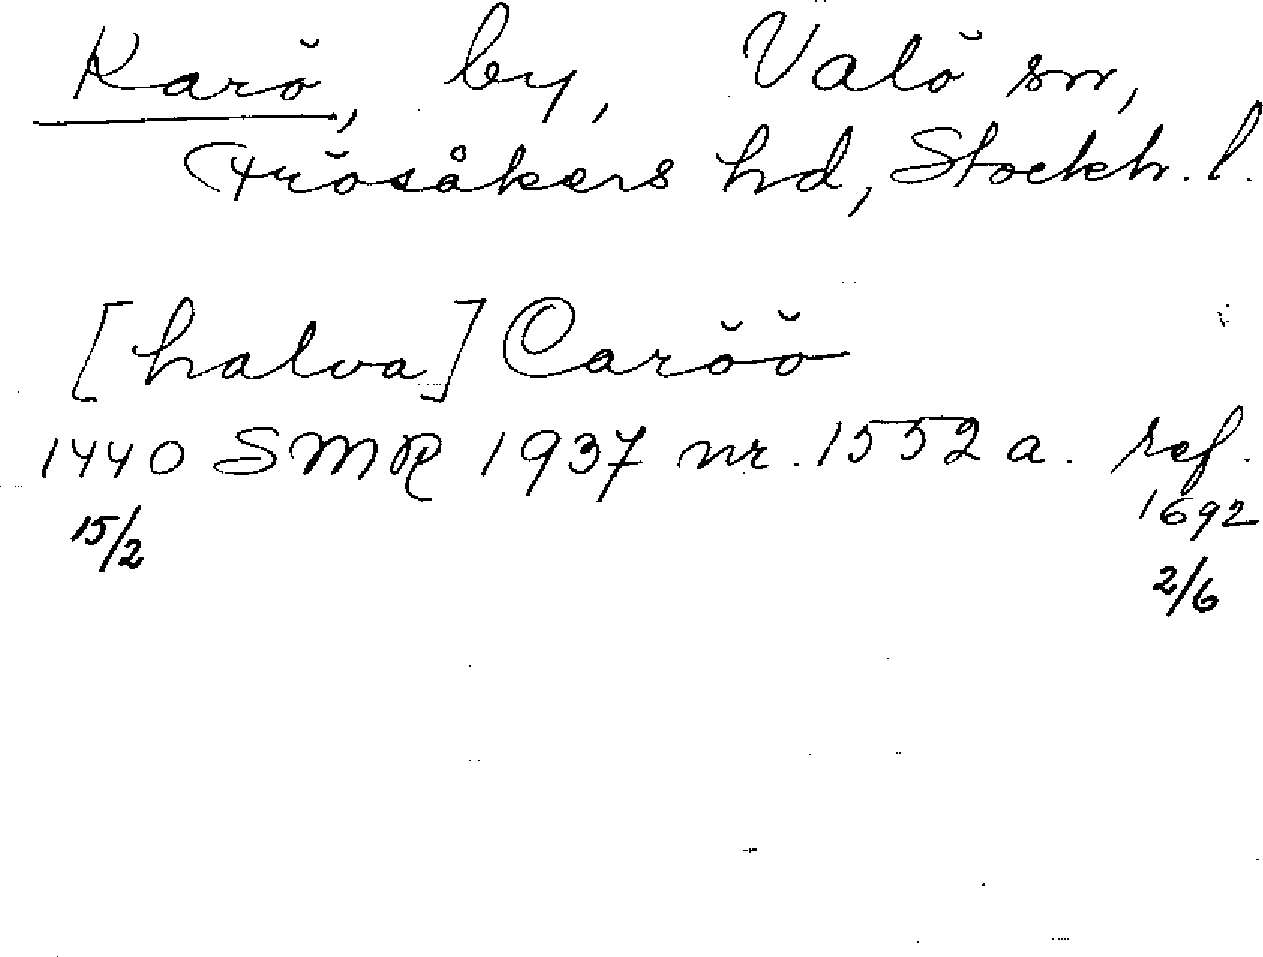 Karö, by, Valö sn,
Frösåkers hd, Stockh. l.
[halva] Caröö
1440 SMR 1937 nr. 1552 a. ref.
15/2
1692
2/6